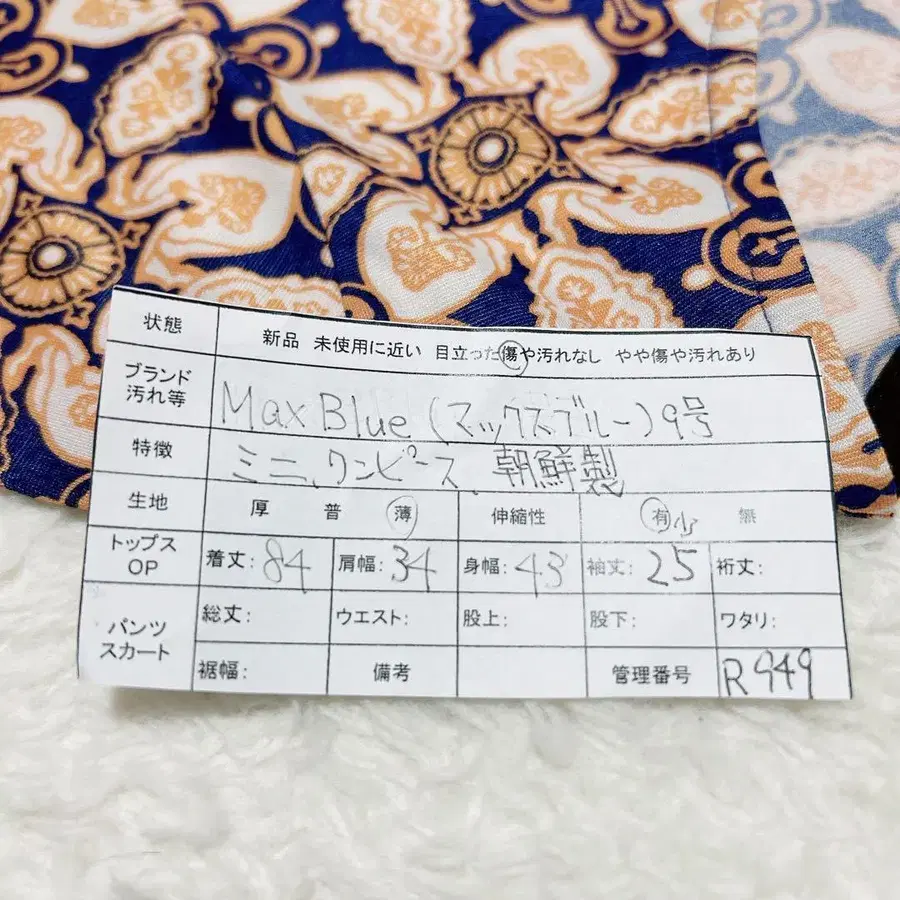 状態 新品 未使用に近い 目立った傷や汚れなし やや傷や汚れあり
ブランド 汚れ等 Max Blue (マックスブルー) 9号
特徴 ミニ、ワンピース、朝鮮製
生地 厚 普 薄 伸縮性 有 少 無
トップス OP 着丈: 84 肩幅: 34 身幅: 43 袖丈: 25 裄丈:
パンツ スカート 総丈: ウエスト: 股上: 股下: ワタリ:
裾幅: 備考 管理番号 R949